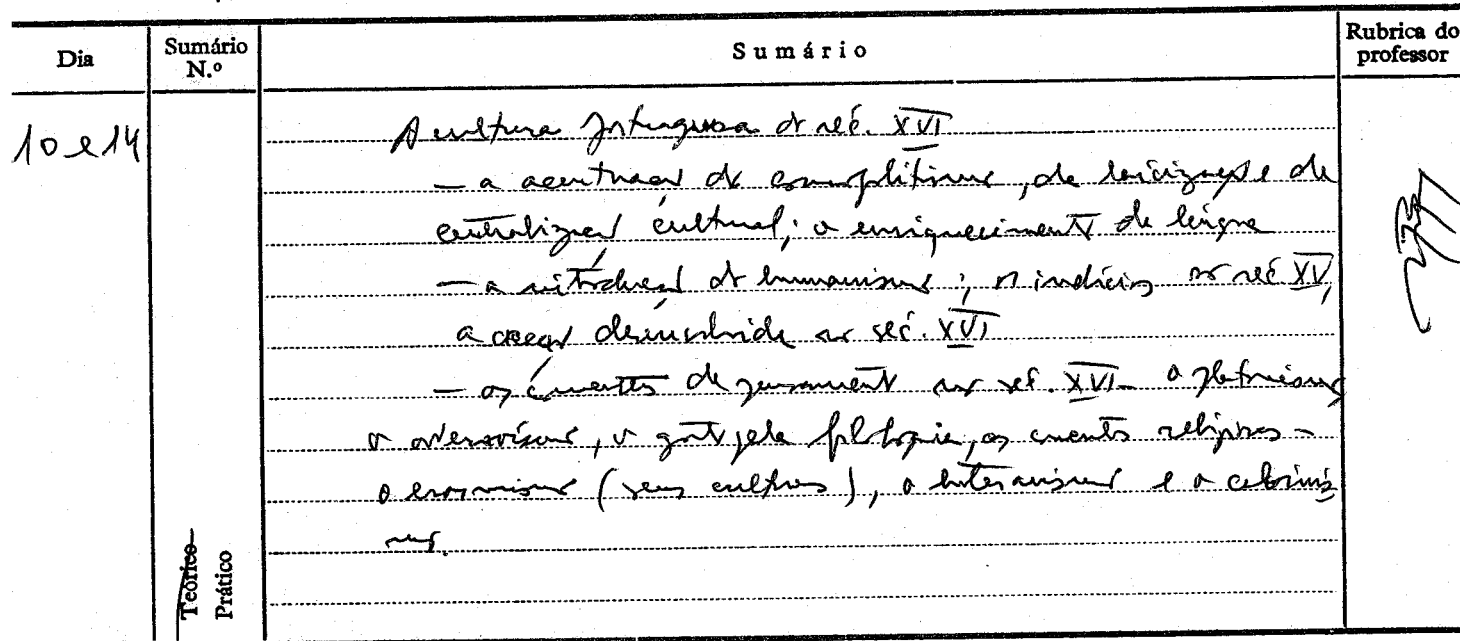 Dia
Sumário N.º
Sumário
Rubrica do professor
10 e 14
A cultura portuguesa do séc. XVI
— a acentuação do cosmopolitismo, da laicização e da
centralização cultural; o enriquecimento da língua
— a introdução do humanismo; os indícios no séc XV,
a acção desenvolvida no séc. XVI
— as correntes de pensamento no séc. XVI – o platonismo
o averroísmo, o gosto pela filologia, as correntes religiosas –
o erasmismo (seus cultores), o luteranismo e o calvinis
mo.
Teórico
Prático